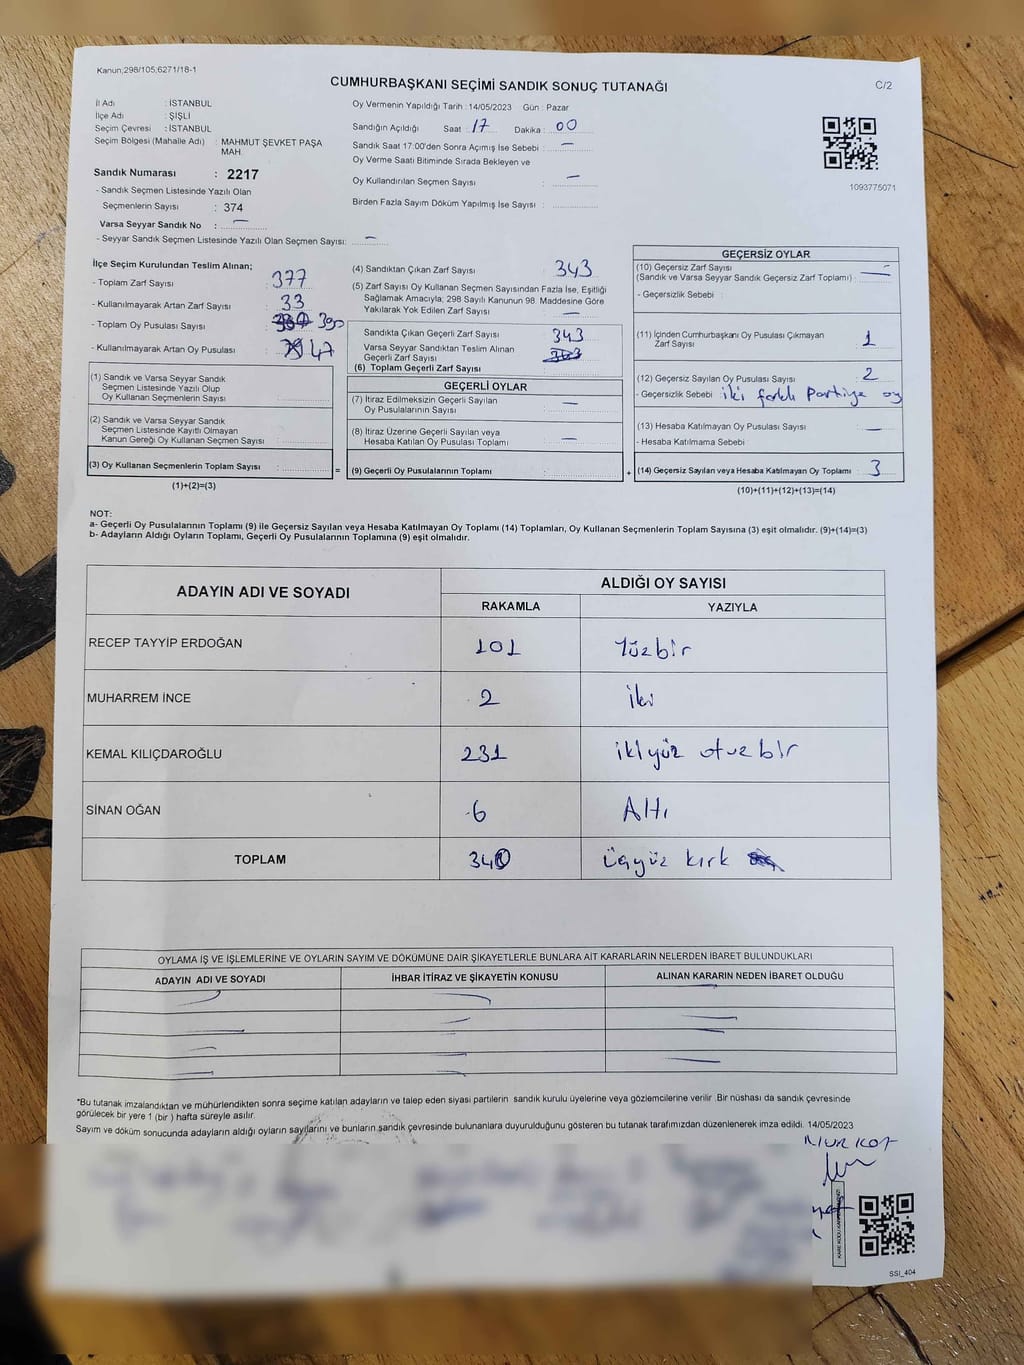 Kanun;298/105,6271/18-1
CUMHURBAŞKANI SEÇİMİ SANDIK SONUÇ TUTANAĞI
C/2
İl Adı : İSTANBUL
İlçe Adı : ŞİŞLİ
Seçim Çevresi : İSTANBUL
Seçim Bölgesi (Mahalle Adı) : MAHMUT ŞEVKET PAŞA
MAH.
Sandık Numarası : 2217
- Sandık Seçmen Listesinde Yazılı Olan
Seçmenlerin Sayısı : 374
Varsa Seyyar Sandık No : —
- Seyyar Sandık Seçmen Listesinde Yazılı Olan Seçmen Sayısı: —
Oy Vermenin Yapıldığı Tarih : 14/05/2023 Gün : Pazar
Sandığın Açıldığı Saat : 17 Dakika : 00
Sandık Saat 17:00'den Sonra Açımış İse Sebebi : —
Oy Verme Saati Bitiminde Sırada Bekleyen ve
Oy Kullandırılan Seçmen Sayısı : —
Birden Fazla Sayım Döküm Yapılmış İse Sayısı :
1093775071
İlçe Seçim Kurulundan Teslim Alınan;
- Toplam Zarf Sayısı : 377
- Kullanılmayarak Artan Zarf Sayısı : 33
- Toplam Oy Pusulası Sayısı : 390
- Kullanılmayarak Artan Oy Pusulası : 47
(1) Sandık ve Varsa Seyyar Sandık
Seçmen Listesinde Yazılı Olup
Oy Kullanan Seçmenlerin Sayısı :
(2) Sandık ve Varsa Seyyar Sandık
Seçmen Listesinde Kayıtlı Olmayan
Kanun Gereği Oy Kullanan Seçmen Sayısı :
(3) Oy Kullanan Seçmenlerin Toplam Sayısı :
(1)+(2)=(3)
(4) Sandıktan Çıkan Zarf Sayısı : 343
(5) Zarf Sayısı Oy Kullanan Seçmen Sayısından Fazla İse, Eşitliği
Sağlamak Amacıyla; 298 Sayılı Kanunun 98. Maddesine Göre
Yakılarak Yok Edilen Zarf Sayısı : —
Sandıkta Çıkan Geçerli Zarf Sayısı : 343
Varsa Seyyar Sandıktan Teslim Alınan
Geçerli Zarf Sayısı
(6) Toplam Geçerli Zarf Sayısı :
GEÇERLİ OYLAR
(7) İtiraz Edilmeksizin Geçerli Sayılan
Oy Pusulalarının Sayısı : —
(8) İtiraz Üzerine Geçerli Sayılan veya
Hesaba Katılan Oy Pusulası Toplamı : —
= (9) Geçerli Oy Pusulalarının Toplamı :
GEÇERSİZ OYLAR
(10) Geçersiz Zarf Sayısı
(Sandık ve Varsa Seyyar Sandık Geçersiz Zarf Toplamı) : —
- Geçersizlik Sebebi :
(11) İçinden Cumhurbaşkanı Oy Pusulası Çıkmayan
Zarf Sayısı : 1
(12) Geçersiz Sayılan Oy Pusulası Sayısı : 2
- Geçersizlik Sebebi : iki farklı Partiye oy
(13) Hesaba Katılmayan Oy Pusulası Sayısı : —
- Hesaba Katılmama Sebebi :
+ (14) Geçersiz Sayılan veya Hesaba Katılmayan Oy Toplamı : 3
(10)+(11)+(12)+(13)=(14)
NOT:
a- Geçerli Oy Pusulalarının Toplamı (9) ile Geçersiz Sayılan veya Hesaba Katılmayan Oy Toplamı (14) Toplamları, Oy Kullanan Seçmenlerin Toplam Sayısına (3) eşit olmalıdır. (9)+(14)=(3)
b- Adayların Aldığı Oyların Toplamı, Geçerli Oy Pusulalarının Toplamına (9) eşit olmalıdır.
ADAYIN ADI VE SOYADI
ALDIĞI OY SAYISI
RAKAMLA YAZIYLA
RECEP TAYYİP ERDOĞAN 101 Yüzbir
MUHARREM İNCE 2 iki
KEMAL KILIÇDAROĞLU 231 ikiyüz otuz bir
SİNAN OĞAN 6 Altı
TOPLAM 340 üçyüz kırk
OYLAMA İŞ VE İŞLEMLERİNE VE OYLARIN SAYIM VE DÖKÜMÜNE DAİR ŞİKAYETLERLE BUNLARA AİT KARARLARIN NELERDEN İBARET BULUNDUKLARI
ADAYIN ADI VE SOYADI İHBAR İTİRAZ VE ŞİKAYETİN KONUSU ALINAN KARARIN NEDEN İBARET OLDUĞU
*Bu tutanak imzalandıktan ve mühürlendikten sonra seçime katılan adayların ve talep eden siyasi partilerin sandık kurulu üyelerine veya gözlemcilerine verilir .Bir nüshası da sandık çevresinde
görülecek bir yere 1 (bir ) hafta süreyle asılır.
Sayım ve döküm sonucunda adayların aldığı oyların sayılarını ve bunların sandık çevresinde bulunanlara duyurulduğunu gösteren bu tutanak tarafımızdan düzenlenerek imza edildi. 14/05/2023
SSI_404